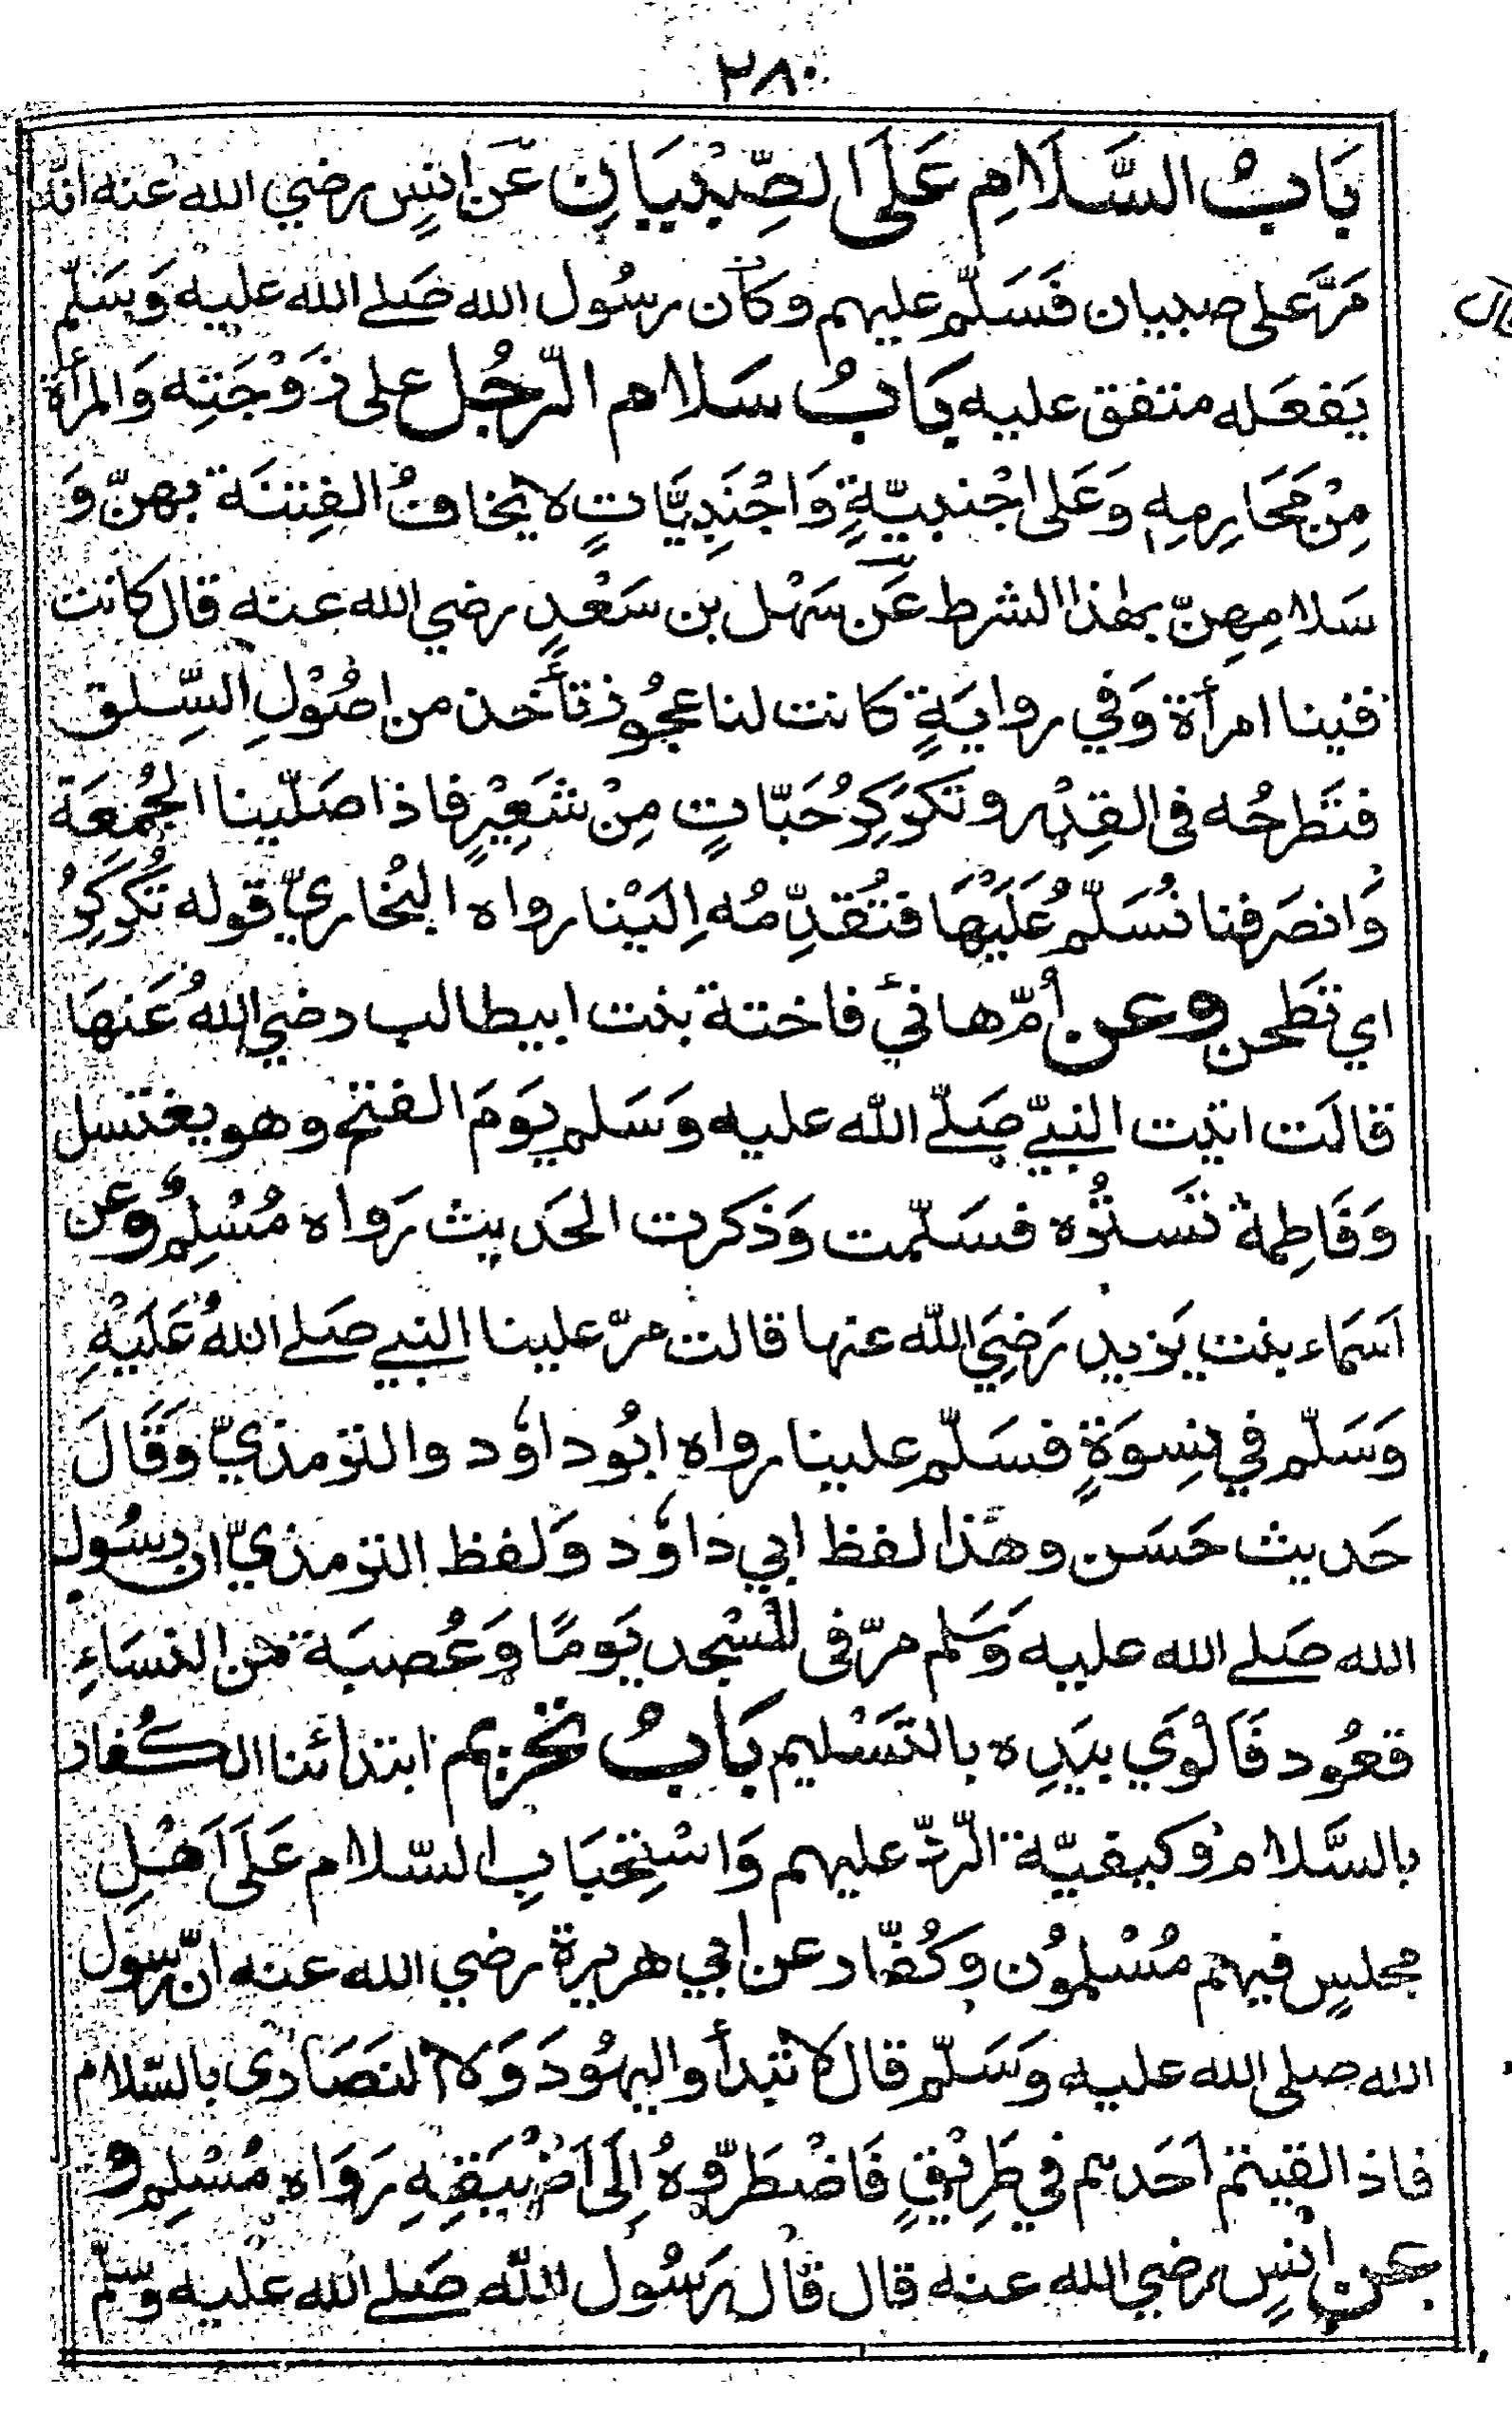 ٢٨٠
بَابُ السَّلَامِ عَلَى الصِّبْيَانِ عَن انسٍ رضي الله عنه انّه
مَرَّ على صبيان فَسَلَّم عليهم وكان رسُول الله صَلى الله عليه وَسَلّم
يَفعَله متفق عليه بَابُ سَلام الرّجُل على زَوْجَتِه وَالمرأة
مِنْ مَحَارِمِه وَعَلى اجْنبيّةٍ وَاجْنَبِيَّاتٍ لا يخافُ الفِتنَة بهنّ وَ
سَلامِهِنّ بهٰذا الشرط عَن سَهْل بن سَعْدٍ رضي الله عنه قال كانت
فينا امرأة وَفي روايَةٍ كانت لنا عجُوز تأخذ من اصُوْلِ السِّلق
فتَطرحُه فى القِدْر وتكَركِرُ حَبّاتٍ مِنْ شَعِيْرٍ فاذا صَلّينا الجُمعَة
وَانصَرفنا نُسَلّمُ عَلَيْهَا فتُقدِّمُه اِلَيْنا رواه البُخاريّ قوله تُكَركِرُ
اي تَطحن وعن أمّ هانئ فاختة بنت ابيطالب رضي اللهُ عَنهَا
قالَت اتيت النبيّ صَلّى الله عليه وَسَلم يَومَ الفتح وهو يغتسل
وَفَاطِمة تَستُرُه فسَلّمت وَذكرت الحَديث رَواه مُسْلِمٌ وعن
اَسَماء بنت يَزيد رَضِيَ الله عنها قالت مرّ علينا النبي صَلى اللهُ عَلَيْهِ
وَسَلّم في نِسوَةٍ فسَلّم علينا رواه ابُو داوٗد والترمذيّ وَقَالَ
حَديث حَسَن وهٰذا لفظ ابي داوٗد وَلفظ الترمذيّ ان رسُول
الله صَلى الله عليه وَسَلم مرّ فى المسْجد يَومًا وَعُصبَة من النسَاءِ
قعُود فَاَلْوَي بيَدِه بالتَسْليم بَابُ تحريم ابتدائنا الكُفار
بالسَّلام وكيفيّة الرّدّ عليهم وَاسْتِحْبَابِ السّلام عَلَى اَهْلِ
مجلسٍ فيهم مُسْلِمُون وكُفّار عن ابي هريرة رضي الله عنه انّ رسول
الله صلى الله عليه وَسَلّم قال لا تبدأوا اليهُودَ وَلا النصَارى بالسّلام
فاذا لقيتم اَحَدهم في طَرِيْقٍ فَاضْطَرّوهُ اِلَى اَضْيَقِهِ رَوَاه مُسْلِم و
عن انسٍ رضي الله عنه قال قال رَسُول الله صَلى الله عليه وسلّم